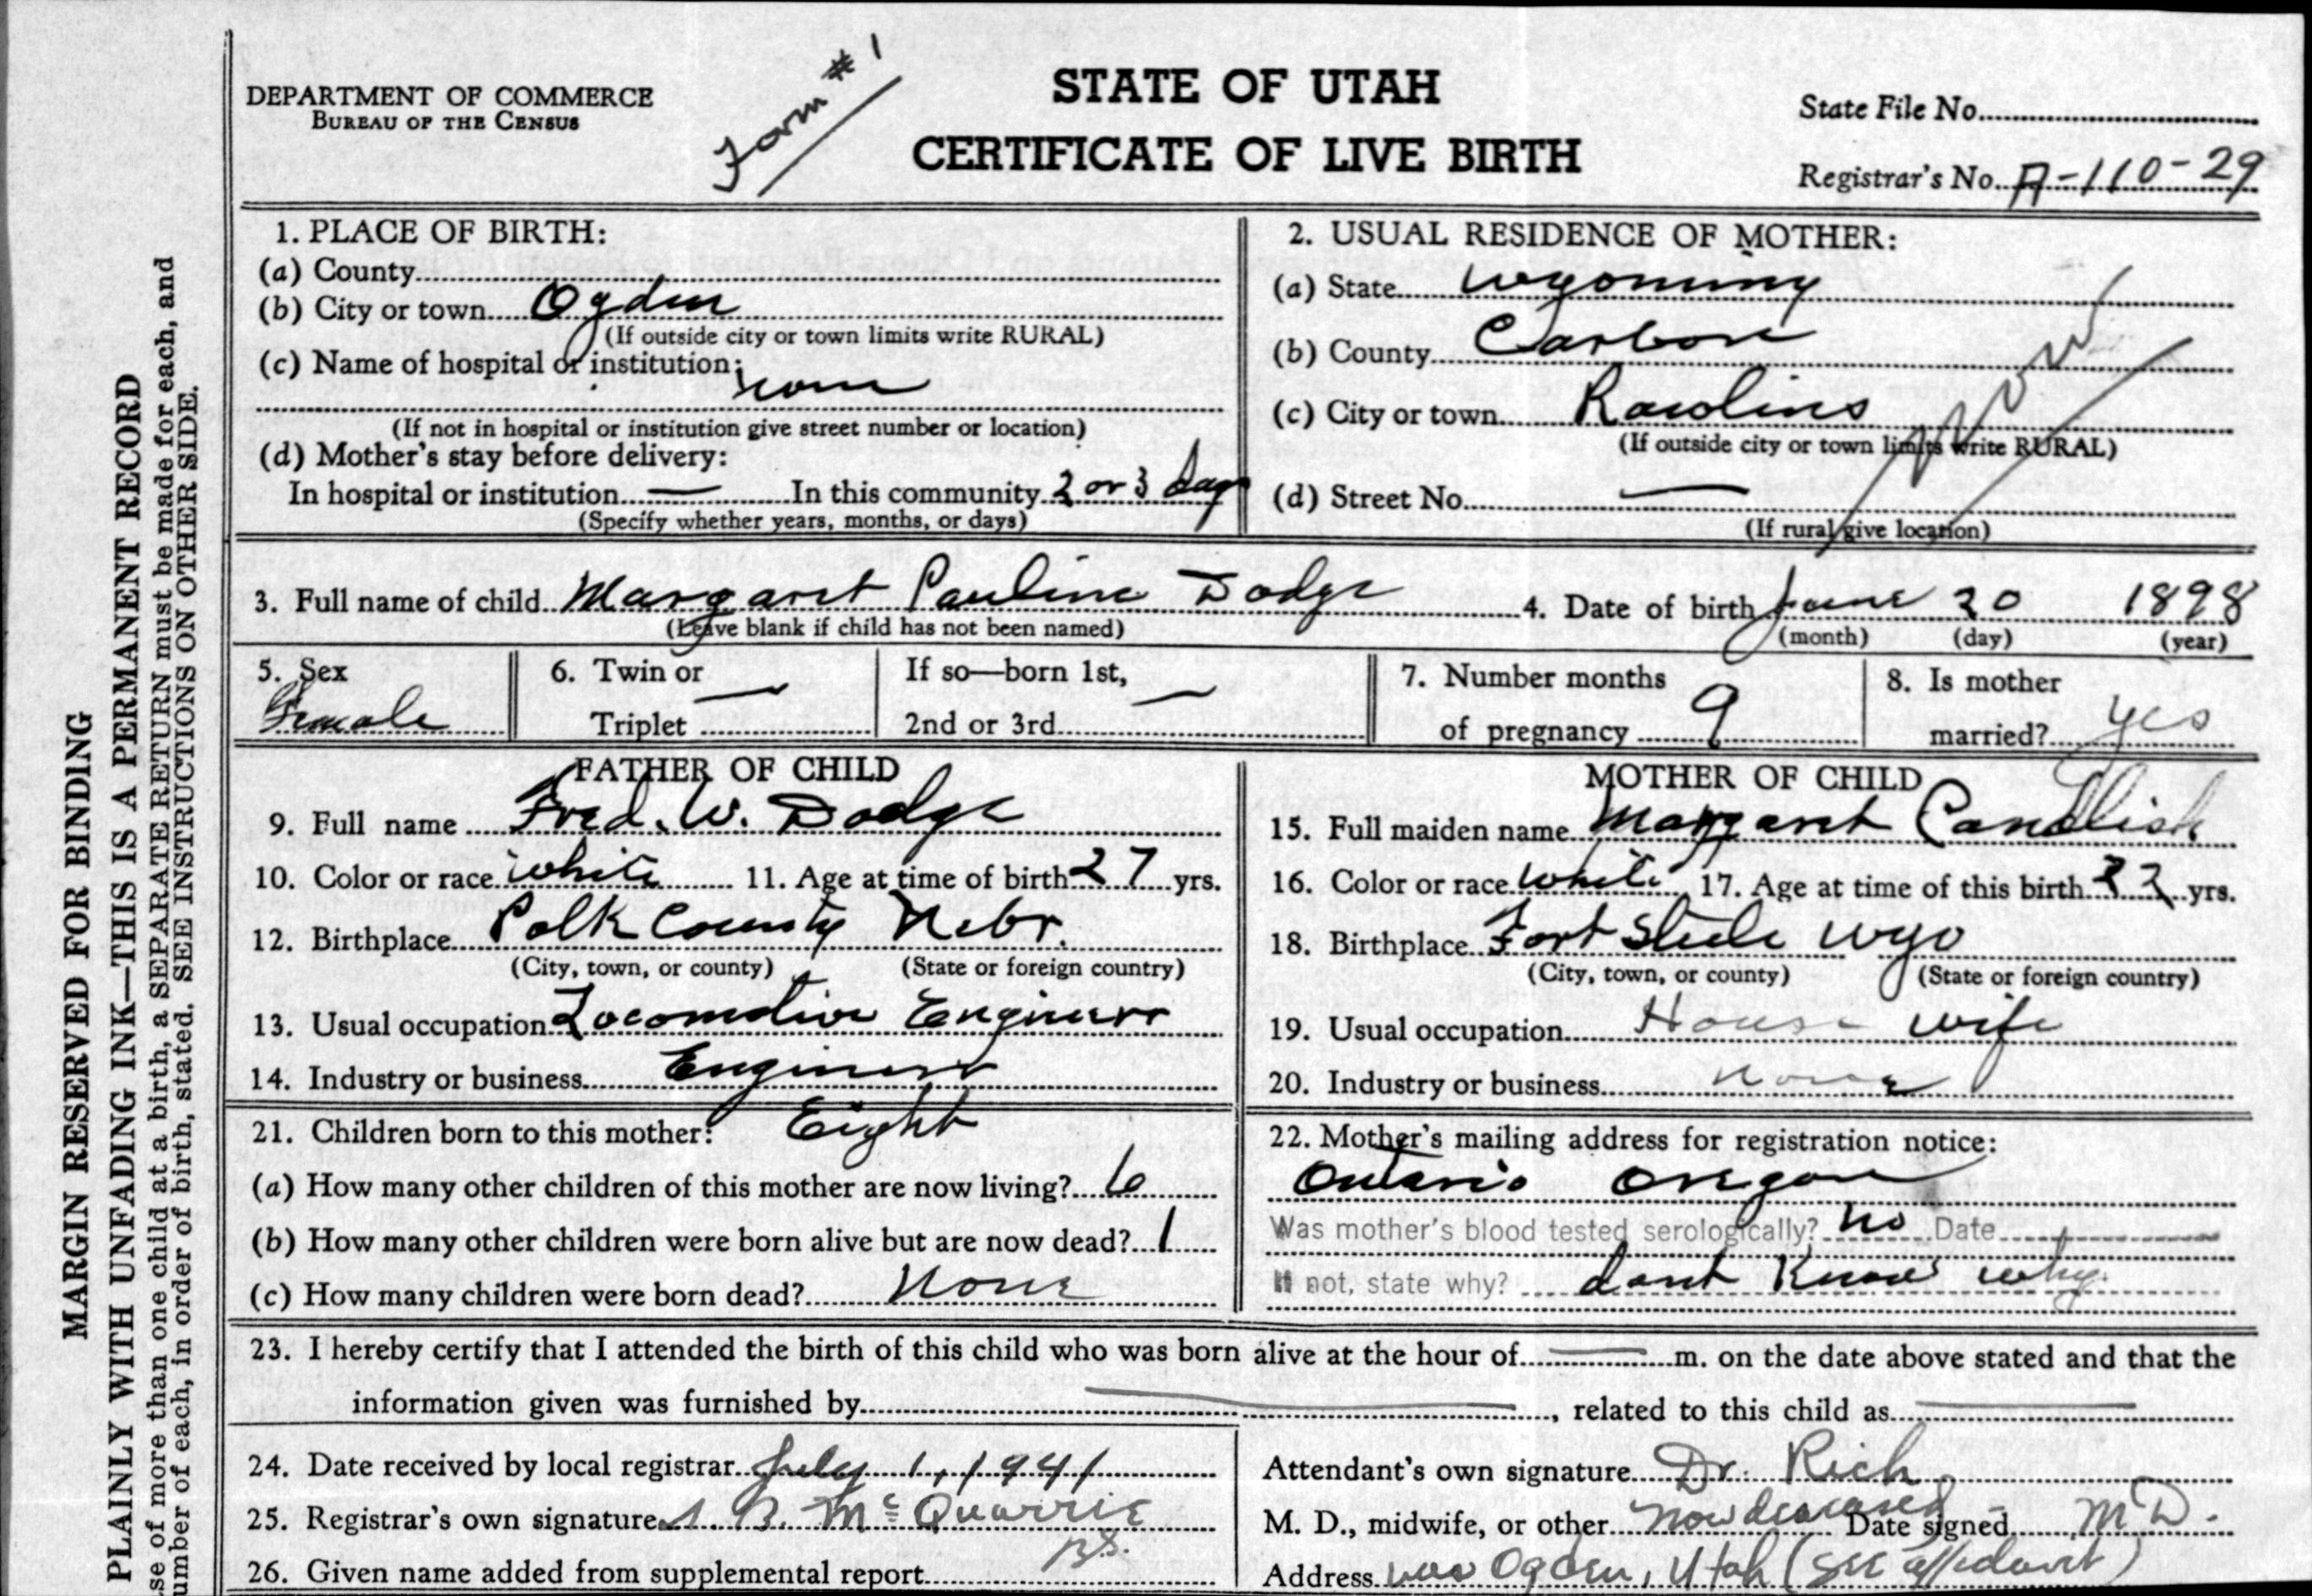 DEPARTMENT OF COMMERCE
BUREAU OF THE CENSUS
Form # 1
STATE OF UTAH
CERTIFICATE OF LIVE BIRTH
State File No.
Registrar's No. A-110-29
1. PLACE OF BIRTH:
(a) County
(b) City or town Ogden
(If outside city or town limits write RURAL)
(c) Name of hospital or institution:
(If not in hospital or institution give street number or location)
(d) Mother's stay before delivery:
In hospital or institution — In this community 2 or 3 days
(Specify whether years, months, or days)
2. USUAL RESIDENCE OF MOTHER:
(a) State Wyoming
(b) County Carbon
(c) City or town Rawlins
(If outside city or town limits write RURAL)
(d) Street No. —
(If rural give location)
3. Full name of child Margaret Pauline Dodge 4. Date of birth June 20 1898
(Leave blank if child has not been named) (month) (day) (year)
5. Sex
Female
6. Twin or —
Triplet
If so—born 1st, —
2nd or 3rd
7. Number months
of pregnancy 9
8. Is mother
married? yes
FATHER OF CHILD
9. Full name Fred. W. Dodge
10. Color or race white 11. Age at time of birth 27 yrs.
12. Birthplace Polk County Nebr.
(City, town, or county) (State or foreign country)
13. Usual occupation Locomotive Engineer
14. Industry or business Engineer
MOTHER OF CHILD
15. Full maiden name Margaret Candlish
16. Color or race White 17. Age at time of this birth yrs.
18. Birthplace Fort Steele Wyo
(City, town, or county) (State or foreign country)
19. Usual occupation House wife
20. Industry or business none
21. Children born to this mother: Eight
(a) How many other children of this mother are now living? 6
(b) How many other children were born alive but are now dead? 1
(c) How many children were born dead? None
22. Mother's mailing address for registration notice:
Ontario Oregon
Was mother's blood tested serologically? no Date
If not, state why? dont Know why.
23. I hereby certify that I attended the birth of this child who was born alive at the hour of — m. on the date above stated and that the
information given was furnished by —, related to this child as —
24. Date received by local registrar July 1, 1941
25. Registrar's own signature McQuarrie
B.S.
26. Given name added from supplemental report
Attendant's own signature Dr. Rich
M. D., midwife, or other Now deceased - Date signed M D.
Address was Ogden, Utah (see affidavit)
MARGIN RESERVED FOR BINDING
PLAINLY WITH UNFADING INK—THIS IS A PERMANENT RECORD
se of more than one child at a birth, a SEPARATE RETURN must be made for each, and
umber of each, in order of birth, stated. SEE INSTRUCTIONS ON OTHER SIDE.